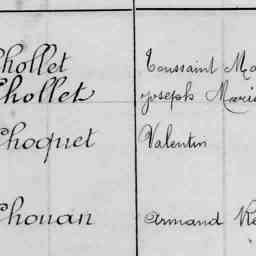 Chollet Toussaint Ma
Chollet Joseph Marie
Choquet Valentin
Chouan Armand Re